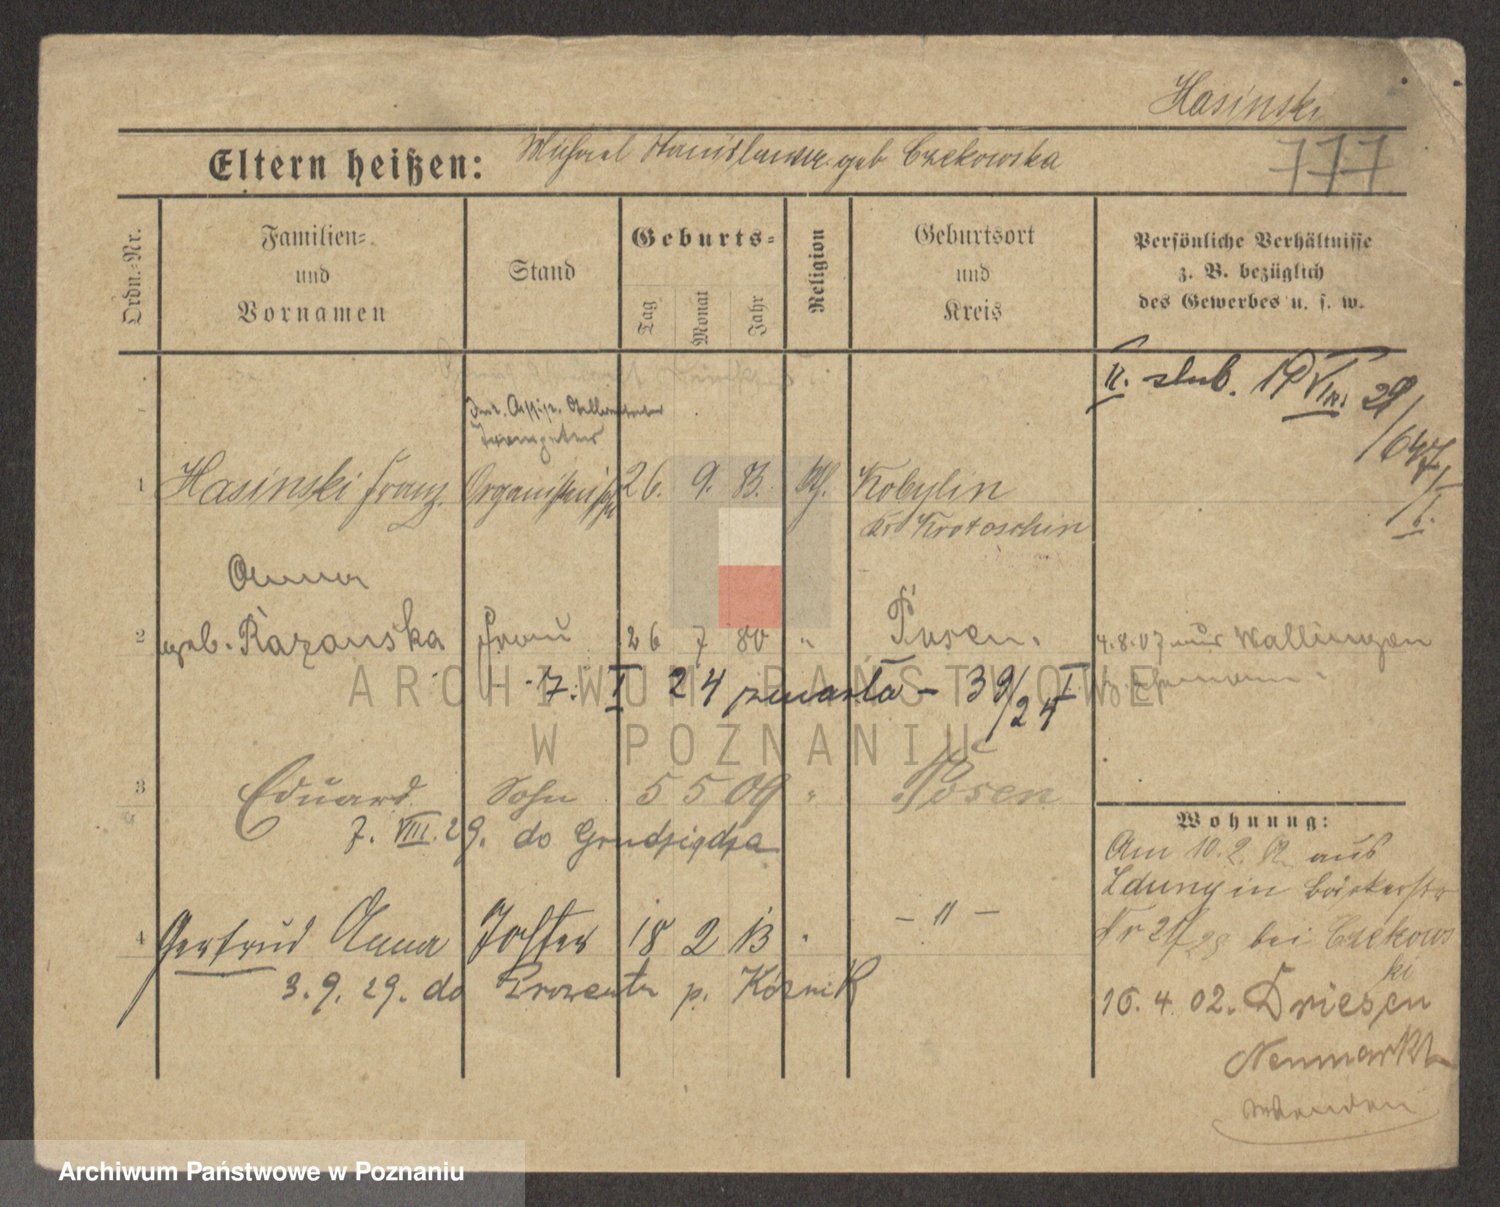 Hasinski
777
Eltern heißen: Michael Stanislawa geb Czekowska
Ordn.-Nr.
Familien- und Vornamen
Stand
Geburts-
Tag Monat Jahr
Religion
Geburtsort und Kreis
Persönliche Verhältnisse
z. B. bezüglich
des Gewerbes u. s. w.
II. slub. 19 VIII 29
Trompeter
1 Hasinski Franz 26. 9. 83. kth. Kobylin
Krs Krotoschin
Anna
2 geb. Razanska Frau 26 7 80 " Posen. 4.8.07 aus
7. I 24 zmarła - 39/24 I
3 Eduard Sohn 5 5 09 " Posen
7. VIII. 29. do Grudziądza
4 Gertrud Anna Tochter 18 2 13 " - " -
3. 9. 29. do p. Kórnik
Wohnung:
Am 10. 2. 02 aus
in Bäckerstr
Nr bei Czekows
ki
16. 4. 02. Driesen
Neumarkt
ARCHIWUM PAŃSTWOWE
W POZNANIU
Archiwum Państwowe w Poznaniu